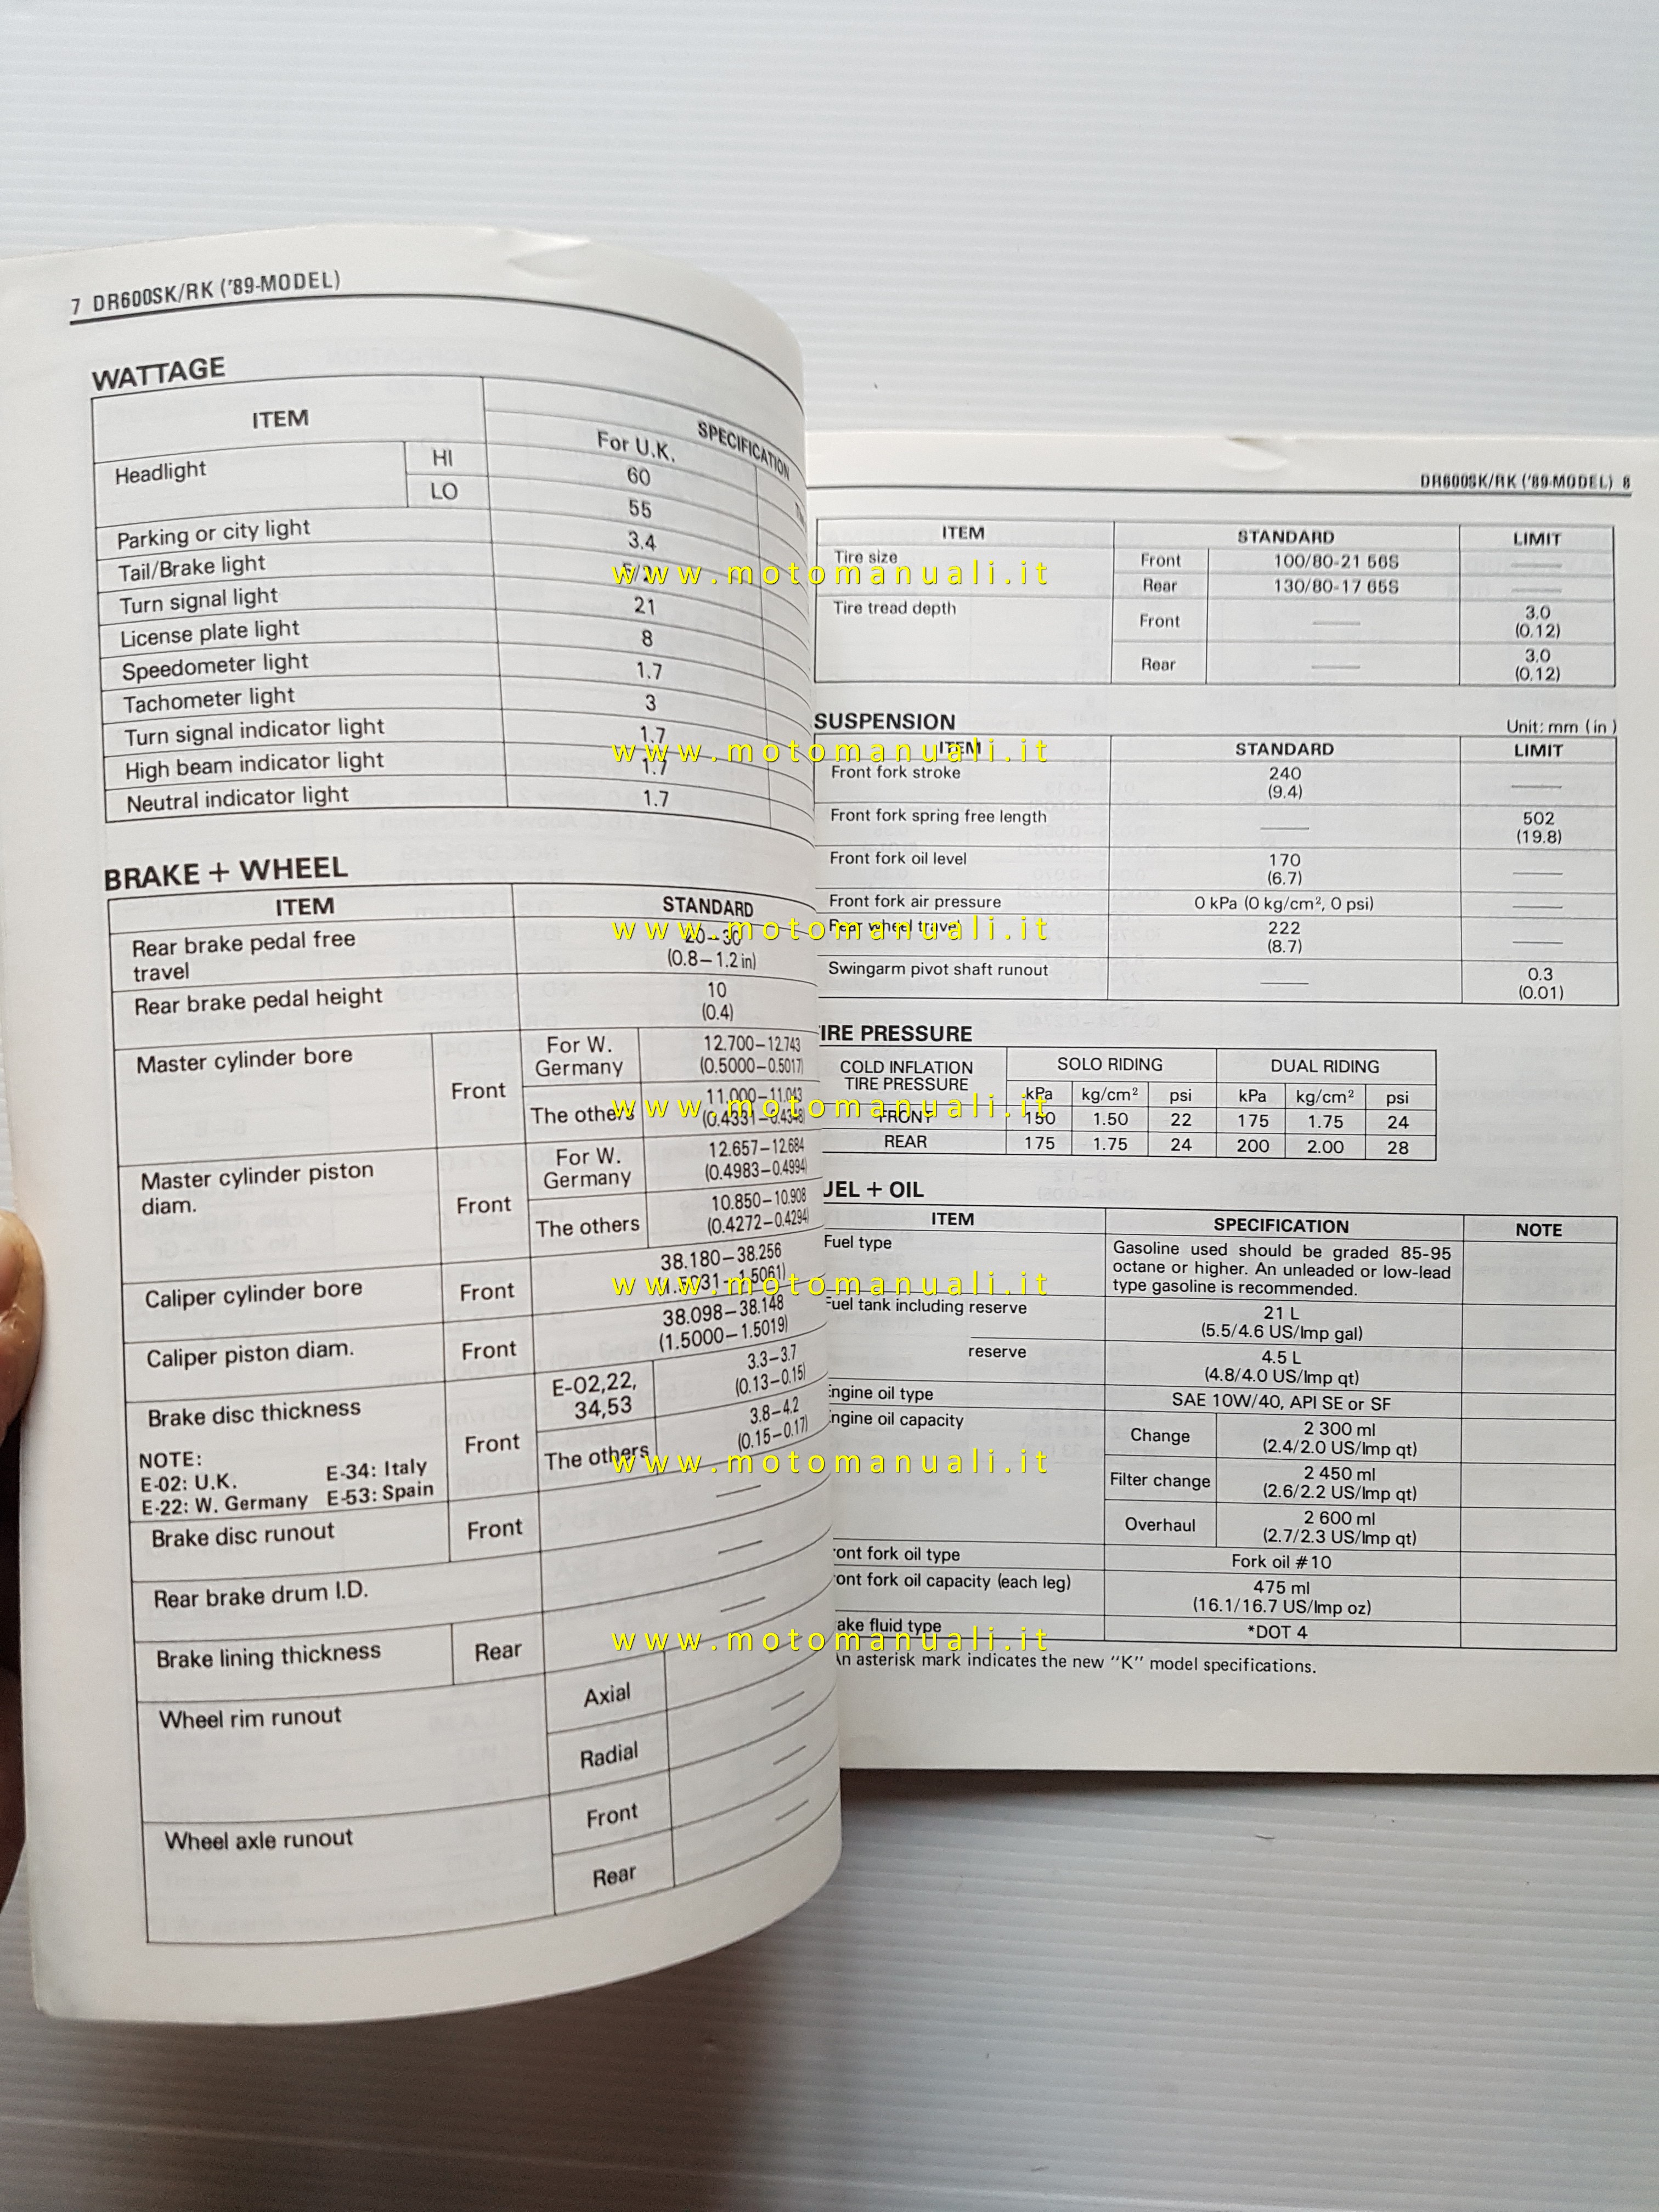 7 DR600SK/RK ('89-MODEL)
WATTAGE
ITEM
SPECIFICATION
For U.K.
Headlight HI 60
LO 55
Parking or city light 3.4
Tail/Brake light
Turn signal light 21
License plate light 8
Speedometer light 1.7
Tachometer light 3
Turn signal indicator light 1.7
High beam indicator light 1.7
Neutral indicator light 1.7
BRAKE + WHEEL
ITEM STANDARD
Rear brake pedal free 20–30
travel (0.8–1.2 in)
Rear brake pedal height 10
(0.4)
Master cylinder bore Front For W. Germany 12.700–12.743
(0.5000–0.5017)
The others 11.000–11.043
(0.4331–0.4348)
Master cylinder piston diam. Front For W. Germany 12.657–12.684
(0.4983–0.4994)
The others 10.850–10.908
(0.4272–0.4294)
Caliper cylinder bore Front 38.180–38.256
(1.5031–1.5061)
Caliper piston diam. Front 38.098–38.148
(1.5000–1.5019)
Brake disc thickness Front E-02,22, 34,53 3.3–3.7
(0.13–0.15)
The others 3.8–4.2
(0.15–0.17)
NOTE:
E-02: U.K. E-34: Italy
E-22: W. Germany E-53: Spain
Brake disc runout Front ——
Rear brake drum I.D. ——
Brake lining thickness Rear ——
Wheel rim runout Axial ——
Radial ——
Wheel axle runout Front ——
Rear
DR600SK/RK ('89-MODEL) 8
ITEM STANDARD LIMIT
Tire size Front 100/80-21 56S ——
Rear 130/80-17 65S ——
Tire tread depth Front —— 3.0
(0.12)
Rear —— 3.0
(0.12)
SUSPENSION Unit: mm (in)
ITEM STANDARD LIMIT
Front fork stroke 240
(9.4) ——
Front fork spring free length —— 502
(19.8)
Front fork oil level 170
(6.7) ——
Front fork air pressure 0 kPa (0 kg/cm², 0 psi) ——
Rear wheel travel 222
(8.7) ——
Swingarm pivot shaft runout —— 0.3
(0.01)
IRE PRESSURE
COLD INFLATION SOLO RIDING DUAL RIDING
TIRE PRESSURE kPa kg/cm² psi kPa kg/cm² psi
FRONT 150 1.50 22 175 1.75 24
REAR 175 1.75 24 200 2.00 28
UEL + OIL
ITEM SPECIFICATION NOTE
Fuel type Gasoline used should be graded 85-95
octane or higher. An unleaded or low-lead
type gasoline is recommended.
Fuel tank including reserve 21 L
(5.5/4.6 US/Imp gal)
reserve 4.5 L
(4.8/4.0 US/Imp qt)
Engine oil type SAE 10W/40, API SE or SF
Engine oil capacity Change 2 300 ml
(2.4/2.0 US/Imp qt)
Filter change 2 450 ml
(2.6/2.2 US/Imp qt)
Overhaul 2 600 ml
(2.7/2.3 US/Imp qt)
ont fork oil type Fork oil #10
ont fork oil capacity (each leg) 475 ml
(16.1/16.7 US/Imp oz)
ake fluid type *DOT 4
An asterisk mark indicates the new "K" model specifications.
www.motomanuali.it
www.motomanuali.it
www.motomanuali.it
www.motomanuali.it
www.motomanuali.it
www.motomanuali.it
www.motomanuali.it